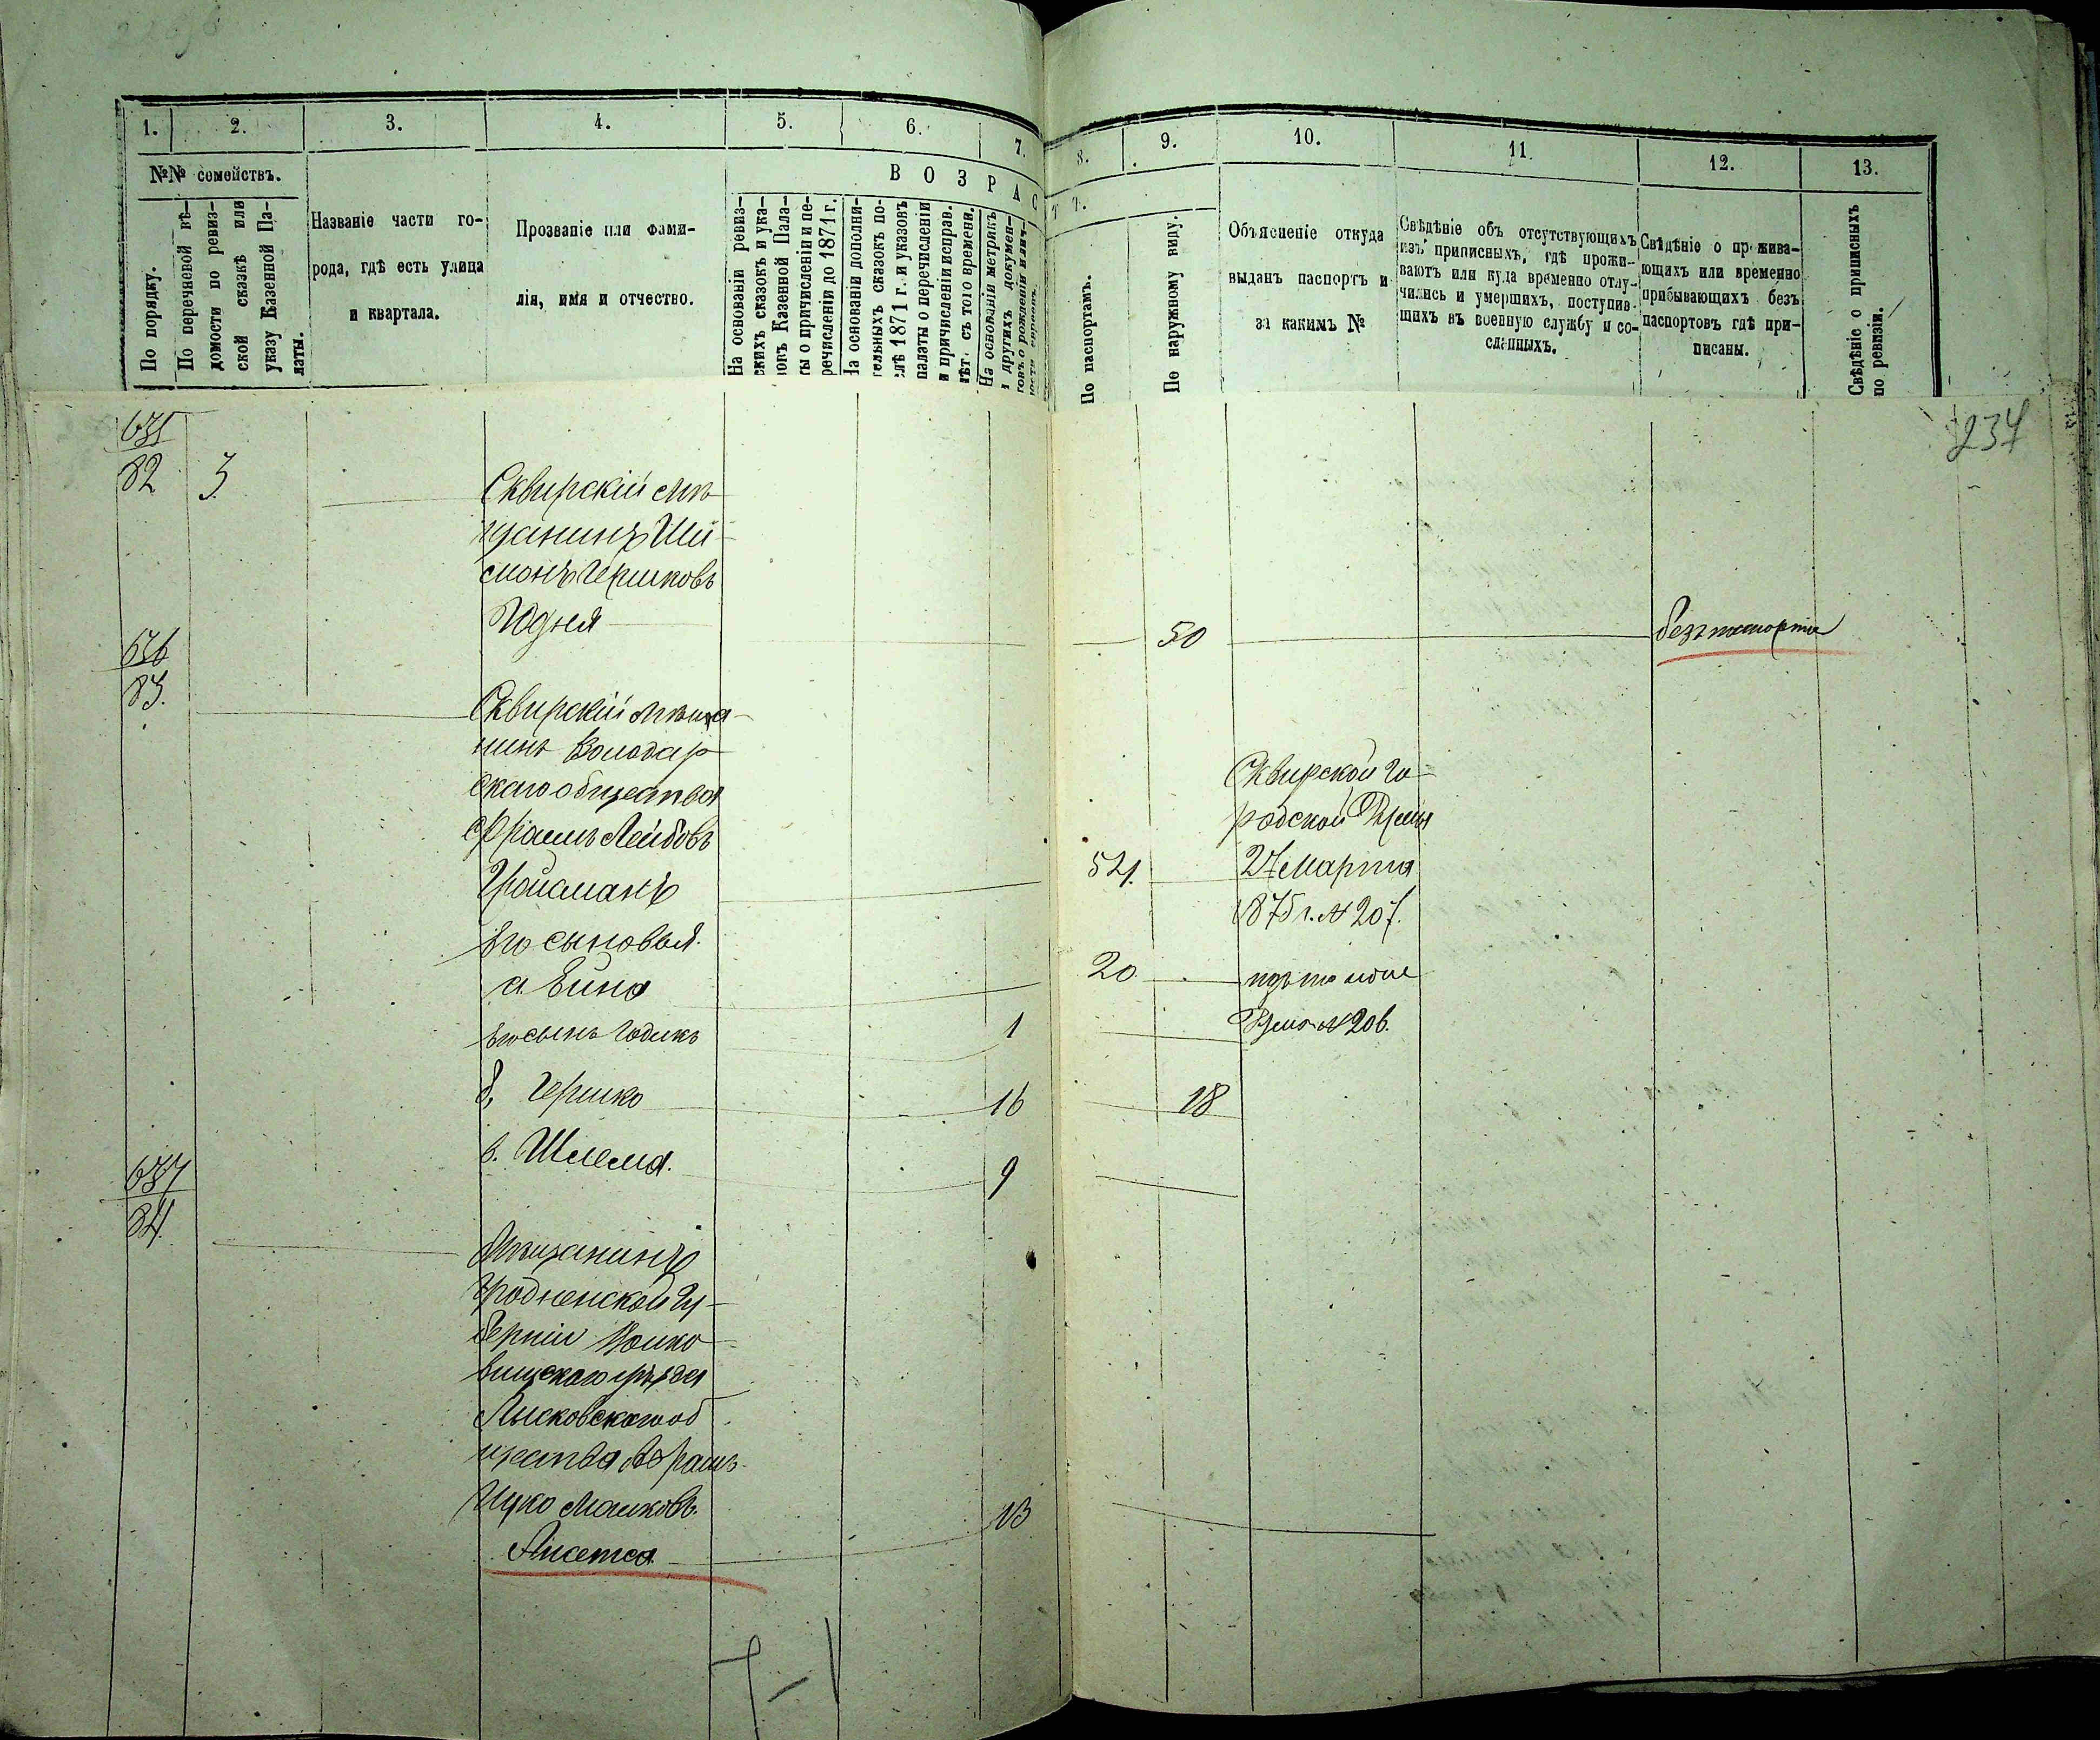 1.
2.
3.
4.
5.
6.
7.
8.
9.
10.
11.
12.
13.
№№ семействъ.
По порядку.
По перечневой вѣ-
домости по ревиз-
ской сказкѣ или
указу Казенной Па-
латы.
Названіе части го-
рода, гдѣ есть улица
и квартала.
Прозваніе или фами-
лія, имя и отчество.
ВОЗРАС
Т Ъ.
На основаніи ревиз-
скихъ сказокъ и ука-
зовъ Казенной Пала-
ты о причисленіи и пе-
речисленіи до 1871 г.
На основаніи дополни-
тельныхъ сказокъ по-
слѣ 1871 г. и указовъ
палаты о перечисленіи
и причисленіи исправ.
лѣт. съ того времени.
На основаніи метрикъ
и другихъ докумен-
товъ о рожденіи и лич-
ности евреевъ.
По паспортамъ.
По наружному виду.
Объясненіе откуда
выданъ паспортъ и
за какимъ №
Свѣдѣніе объ отсутствующихъ
изъ приписныхъ, гдѣ прожи-
ваютъ или куда временно отлу-
чились и умершихъ, поступив-
шихъ въ военную службу и со-
сланныхъ.
Свѣдѣніе о прожива-
ющихъ или временно
прибывающихъ безъ
паспортовъ гдѣ при-
писаны.
Свѣдѣніе о приписныхъ
по ревизіи.
234
82 3
Сквирскій мѣ-
щанинъ Ши-
монъ Гершковъ
50 безъ паспорта
83.
Сквирскій мѣща-
нинъ Володар-
скаго общества
Лейбовъ
Гройсманъ
52
Сквирской Го-
родской Думы
24 Марта
1875 г. № 207.
Его сыновья.
а
20
изъ той же
Думы № 206.
Его сынъ Годикъ 1
б, Гершко 16 18
в. Шлема. 9
637
84.
Мѣщанинъ
Гродненской Гу-
берніи Волко-
вискаго уѣзда
Лысковскаго об
щества Абрамъ
Ицко Мошковъ 13